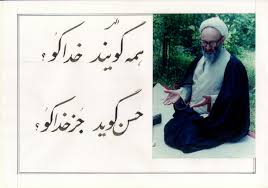 الهی
همه گویند خدا کو؟
حسن گوید جز خدا کو؟